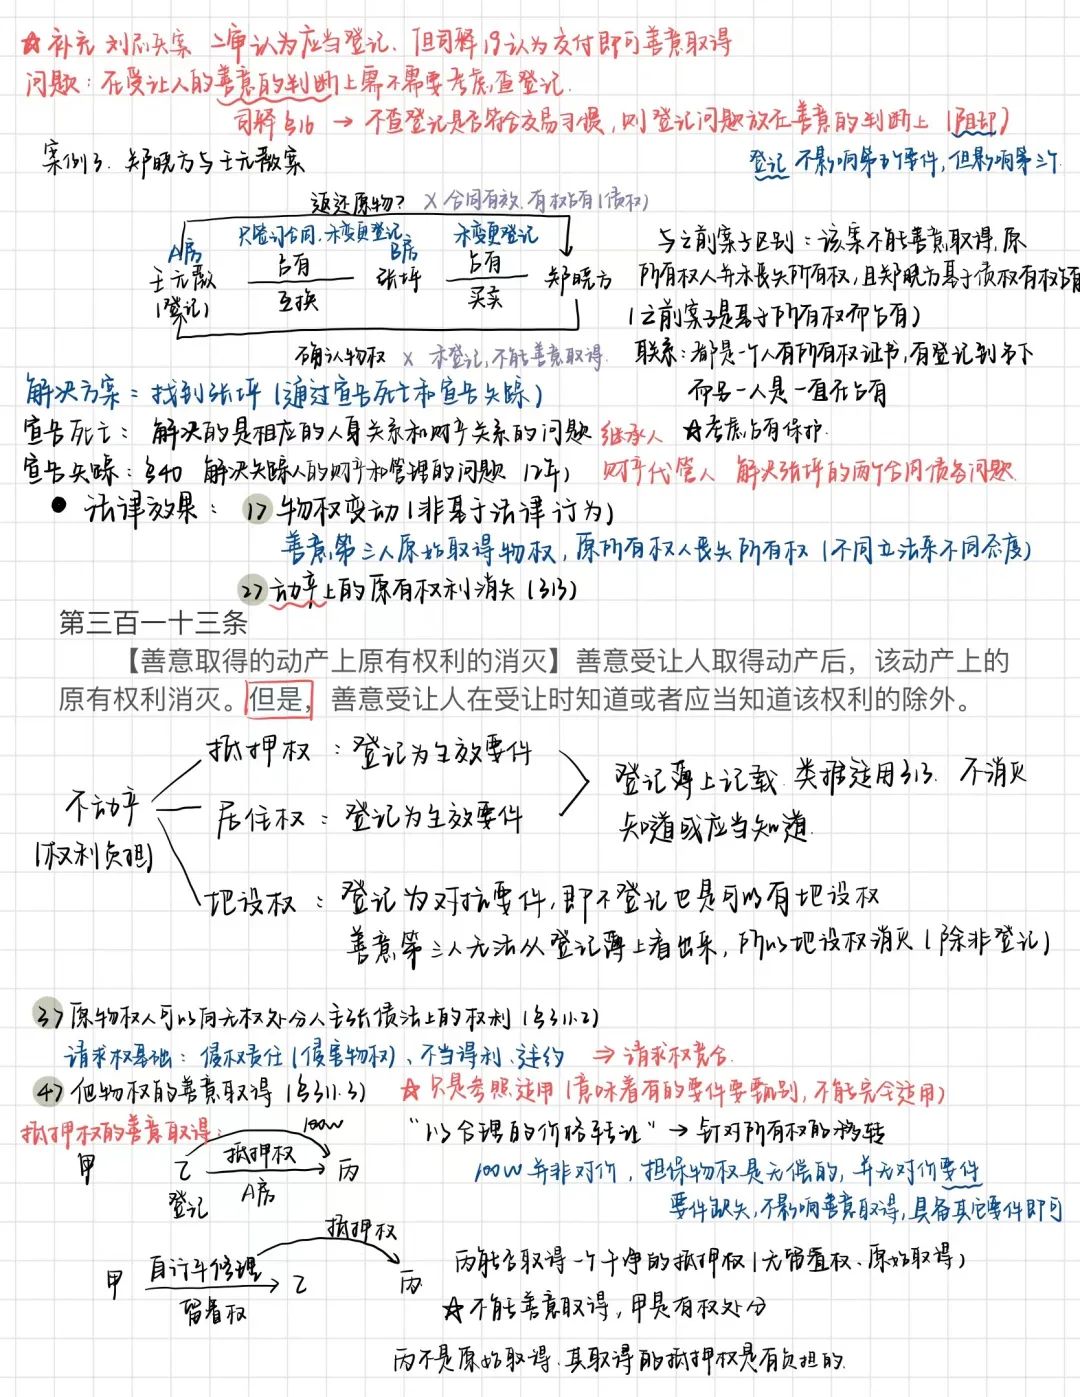 ☆补充 刘志兵案 二审认为应当登记、但司释19认为交付即可善意取得
问题：在受让人的善意的判断上需不需要考虑查登记.
司释§16 → 不查登记是否符合交易习惯，则登记问题放在善意的判断上（阻却）
案例3. 郑晓方与王元散案
登记 不影响第五个要件，但影响第三个.
返还原物？ × 合同有效、有权占有（债权）
A房 只签订合同、未变更登记 B房 未变更登记
王元散 占有 张坪 占有 郑晓方
（登记） 互换 买卖
确认物权 × 未登记，不能善意取得.
与之前案子区别：该案不能善意取得，原
所有权人并未丧失所有权，且郑晓方基于债权有权占有
（之前案子是基于所有权而占有）
联系：都是一个人有所有权证书，有登记到名下
而另一人是一直在占有
解决方案：找到张坪（通过宣告死亡和宣告失踪）
宣告死亡：解决的是相应的人身关系和财产关系的问题 继承人 ☆考虑占有保护.
宣告失踪：§40 解决失踪人的财产和管理的问题（2年） 财产代管人 解决张坪的两个合同债务问题.
● 法律效果：1> 物权变动（非基于法律行为）
善意第三人原始取得物权，原所有权人丧失所有权（不同立法系不同态度）
2> 动产上的原有权利消失（313）
第三百一十三条
【善意取得的动产上原有权利的消灭】善意受让人取得动产后，该动产上的
原有权利消灭。但是，善意受让人在受让时知道或者应当知道该权利的除外。
不动产
（权利负担）
抵押权：登记为生效要件
居住权：登记为生效要件
登记簿上记载 类推适用313. 不消灭
知道或应当知道.
地役权：登记为对抗要件，即不登记也是可以有地役权
善意第三人无法从登记簿上看出来，所以地役权消灭（除非登记）
3> 原物权人可以向无权处分人主张债法上的权利（§311.2）
请求权基础：侵权责任（侵害物权）、不当得利、违约 ⇒ 请求权竞合.
4> 他物权的善意取得（§311.3） ☆只是参照适用（意味着有的要件要甄别，不能完全适用）
抵押权的善意取得：
100w
甲 乙 抵押权 丙
登记 A房
“以合理的价格转让” → 针对所有权的移转
100w并非对价，担保物权是无偿的，并无对价要件
要件缺失，不影响善意取得，具备其它要件即可
抵押权
甲 自行车修理 乙 丙
留置权
丙能否取得一个干净的抵押权（无留置权、原始取得）
☆不能善意取得，甲是有权处分
丙不是原始取得、其取得的抵押权是有负担的.